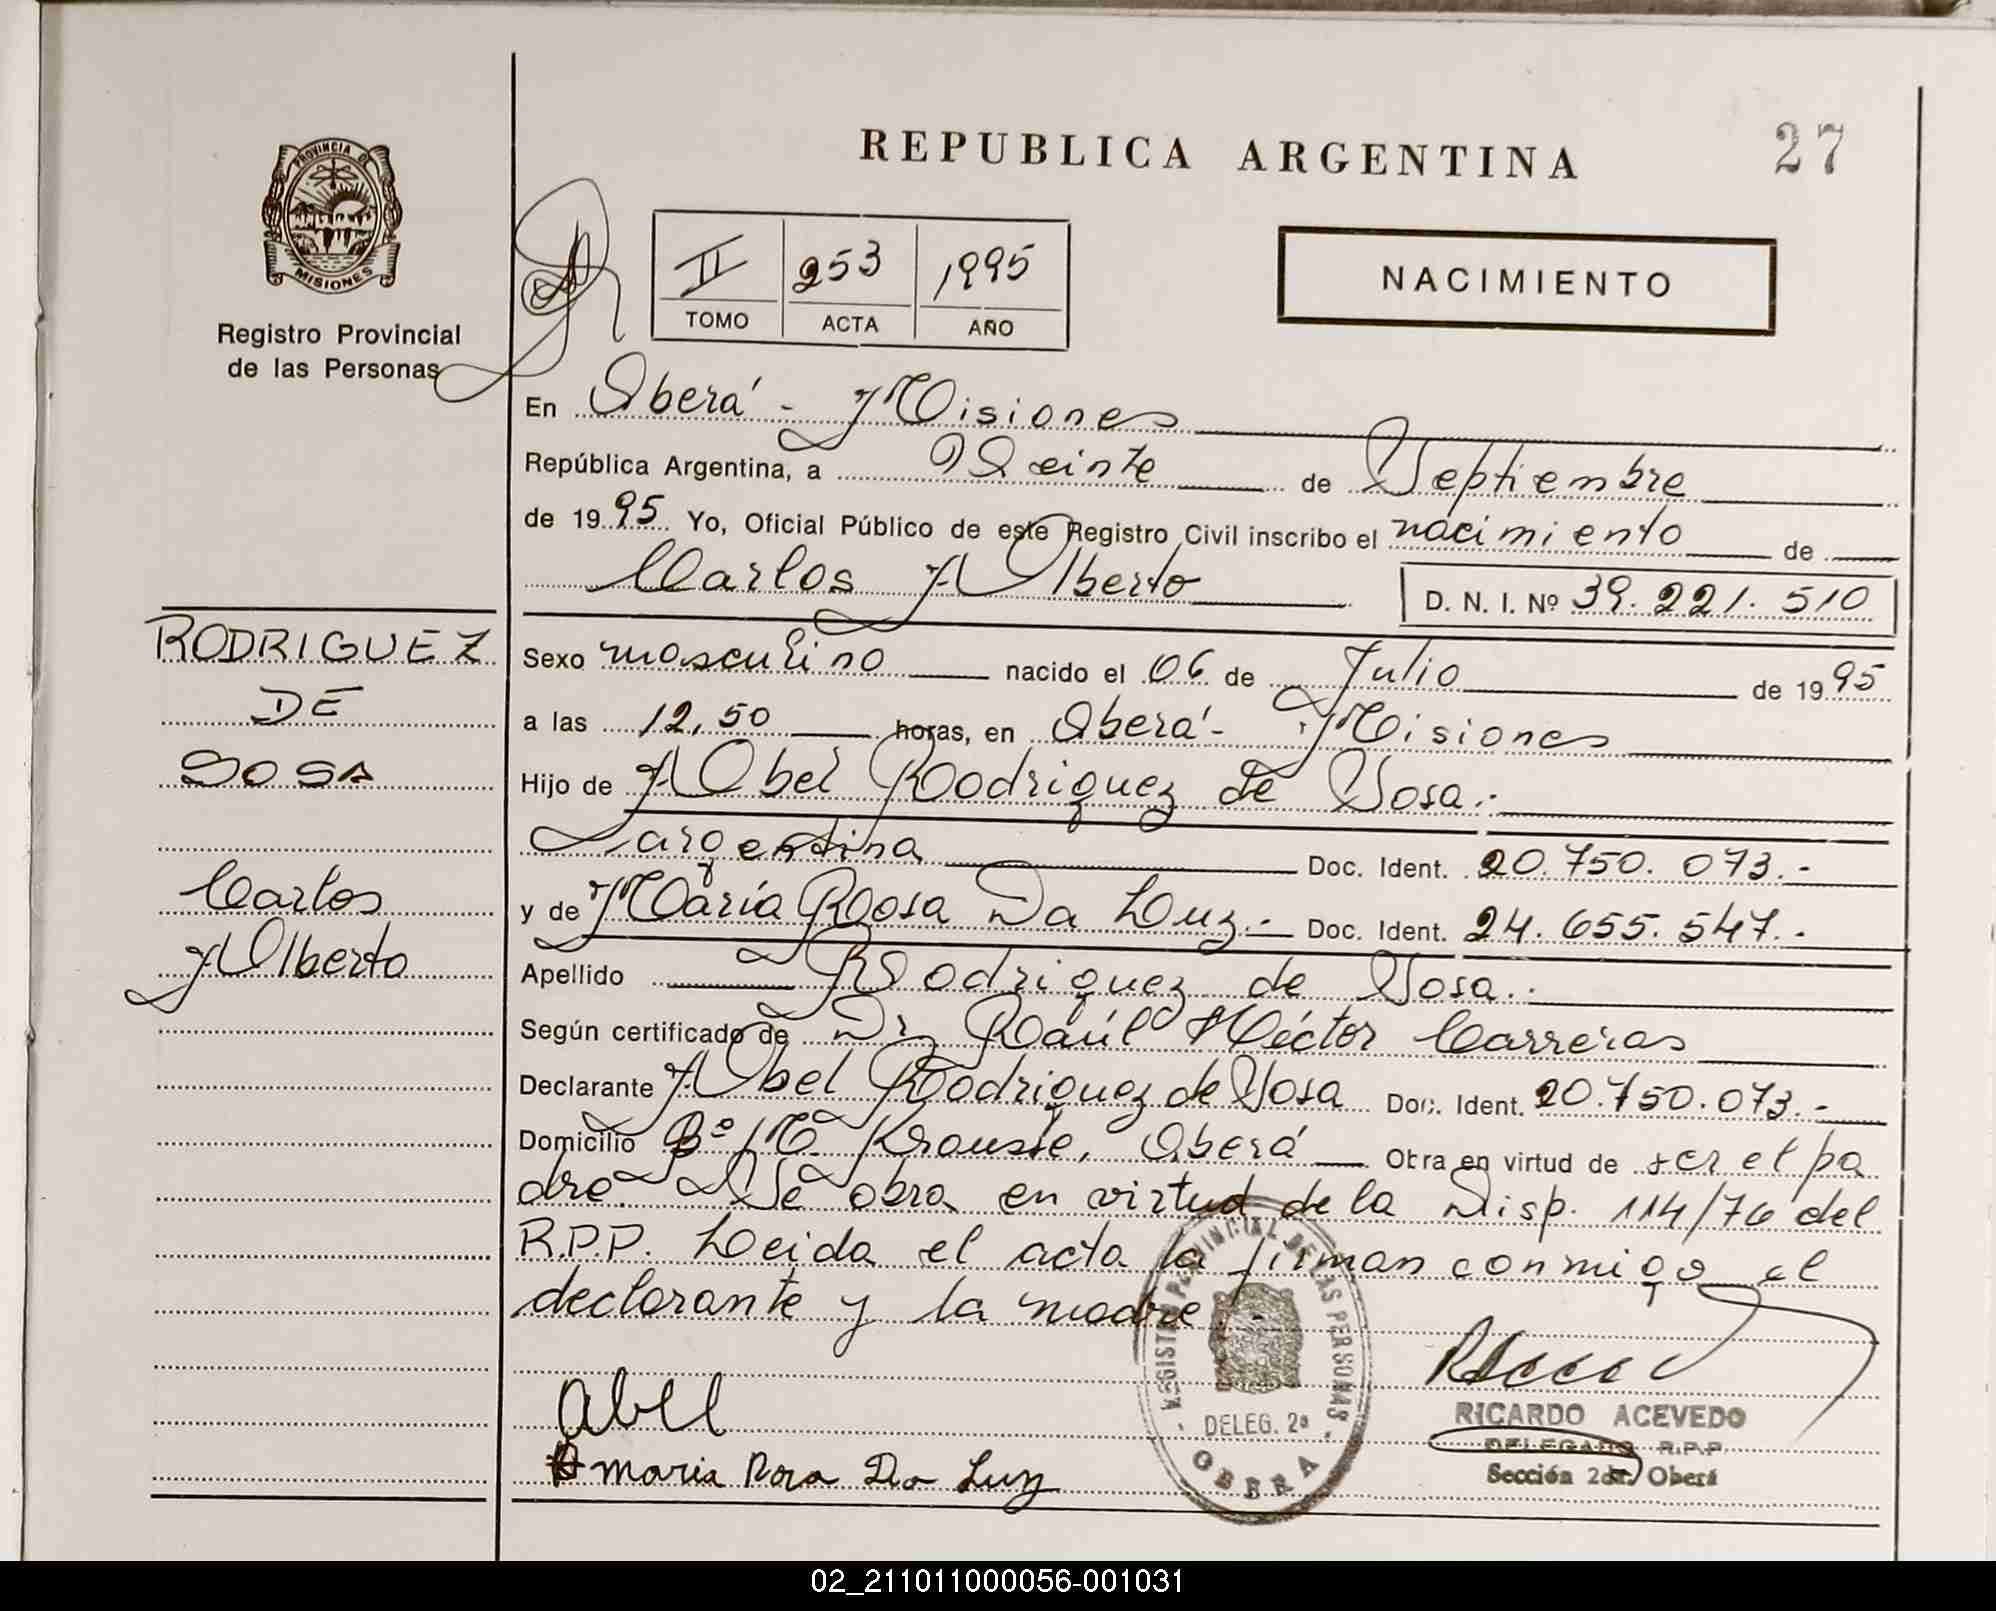 REPUBLICA ARGENTINA
27
PROVINCIA DE
MISIONES
Registro Provincial
de las Personas
II 253 1995
TOMO ACTA AÑO
NACIMIENTO
En Oberá - Misiones
República Argentina, a Veinte de Septiembre
de 1995 Yo, Oficial Público de este Registro Civil inscribo el nacimiento de
Carlos Alberto D. N. I. Nº 39.221.510
RODRIGUEZ
DE
SOSA
Carlos
Alberto
Sexo masculino nacido el 06 de Julio de 1995
a las 12,50 horas, en Oberá - Misiones
Hijo de Abel Rodriguez de Sosa.-
argentina Doc. Ident. 20.750.073.-
y de María Rosa Da Luz.- Doc. Ident. 24.655.547.-
Apellido Rodriguez de Sosa.-
Según certificado de Dr Raúl Héctor Carreras
Declarante Abel Rodriguez de Sosa Doc. Ident. 20.750.073.-
Domicilio Bº M. Krausse, Oberá Obra en virtud de ser el pa
dre. Se obra en virtud de la Disp. 114/76 del
R.P.P. Leida el acta la firman conmigo el
declarante y la madre.-
abel
maria Rosa Da Luz
REGISTRO PROVINCIAL DE LAS PERSONAS
DELEG. 2ª
OBERA
RICARDO ACEVEDO
DELEGADO R.P.P.
Sección 2da. Oberá
02_211011000056-001031